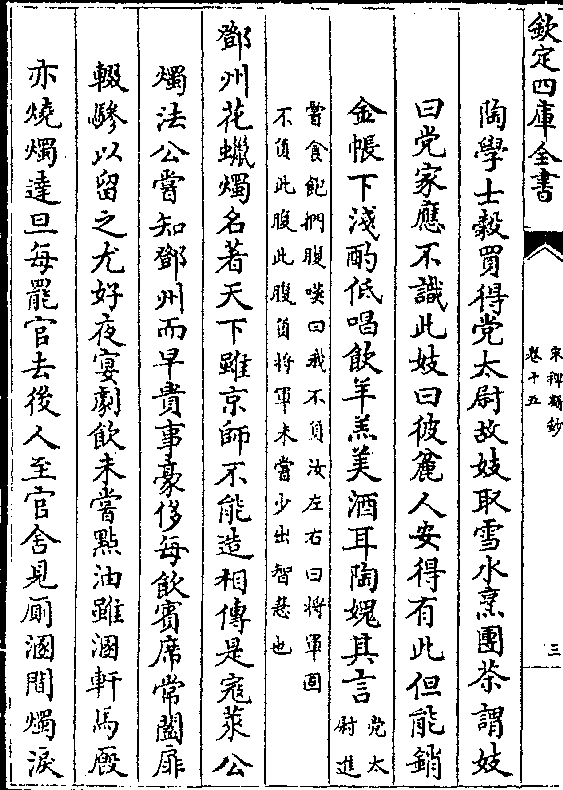 欽定四庫全書
宋稗類鈔
卷十五
三
陶學士穀買得党太尉故妓取雪水烹團茶謂妓
曰党家應不識此妓曰彼麄人安得有此但能銷
金帳下淺酌低唱飲羊羔美酒耳陶媿其言
党太
尉進
嘗食飽捫腹嘆曰我不負汝左右曰將軍固
不負此腹此腹負將軍未嘗少出智慧也
鄧州花蠟燭名著天下雖京師不能造相傳是寇萊公
燭法公嘗知鄧州而早貴事豪侈每飲賓席常闔扉
輟驂以留之尤好夜宴劇飲未嘗點油雖溷軒馬廐
亦燒燭達旦每罷官去後人至官舍見厠溷間燭淚